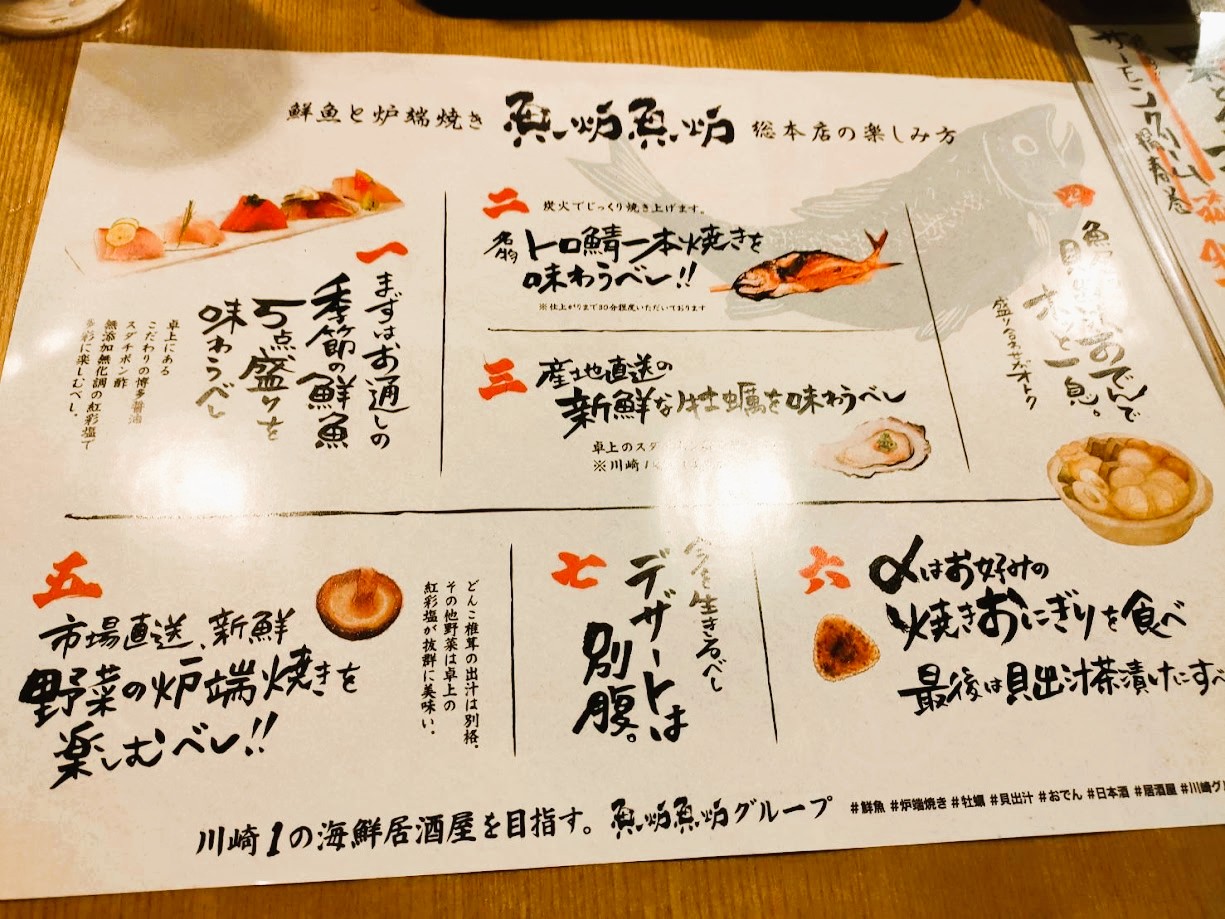 鮮魚と炉端焼き 魚炉魚炉 総本店の楽しみ方
一
まずはお通しの
季節の鮮魚
5点盛りを
味わうべし
卓上にある
こだわりの博多醤油
スダチポン酢
無添加無化調の紅彩塩で
多彩に楽しむべし。
二 炭火でじっくり焼き上げます。
名物 トロ鯖一本焼きを
味わうべし!!
※仕上がりまで30分程度いただいております
三 産地直送の
新鮮な牡蠣を味わうべし
卓上のスダ
※川崎
四
でんで
一息。
盛り合わせがオトク
五
市場直送、新鮮
野菜の炉端焼きを
楽しむべし!!
どんこ椎茸の出汁は別格。
その他野菜は卓上の
紅彩塩が抜群に美味い。
六 〆はお好みの
焼きおにぎりを食べ
最後は貝出汁茶漬けにすべ
七
今を生きるべし
デザートは
別腹。
川崎1の海鮮居酒屋を目指す。魚炉魚炉グループ
#鮮魚 #炉端焼き #牡蠣 #貝出汁 #おでん #日本酒 #居酒屋 #川崎グル
サーモンクリーム
春巻